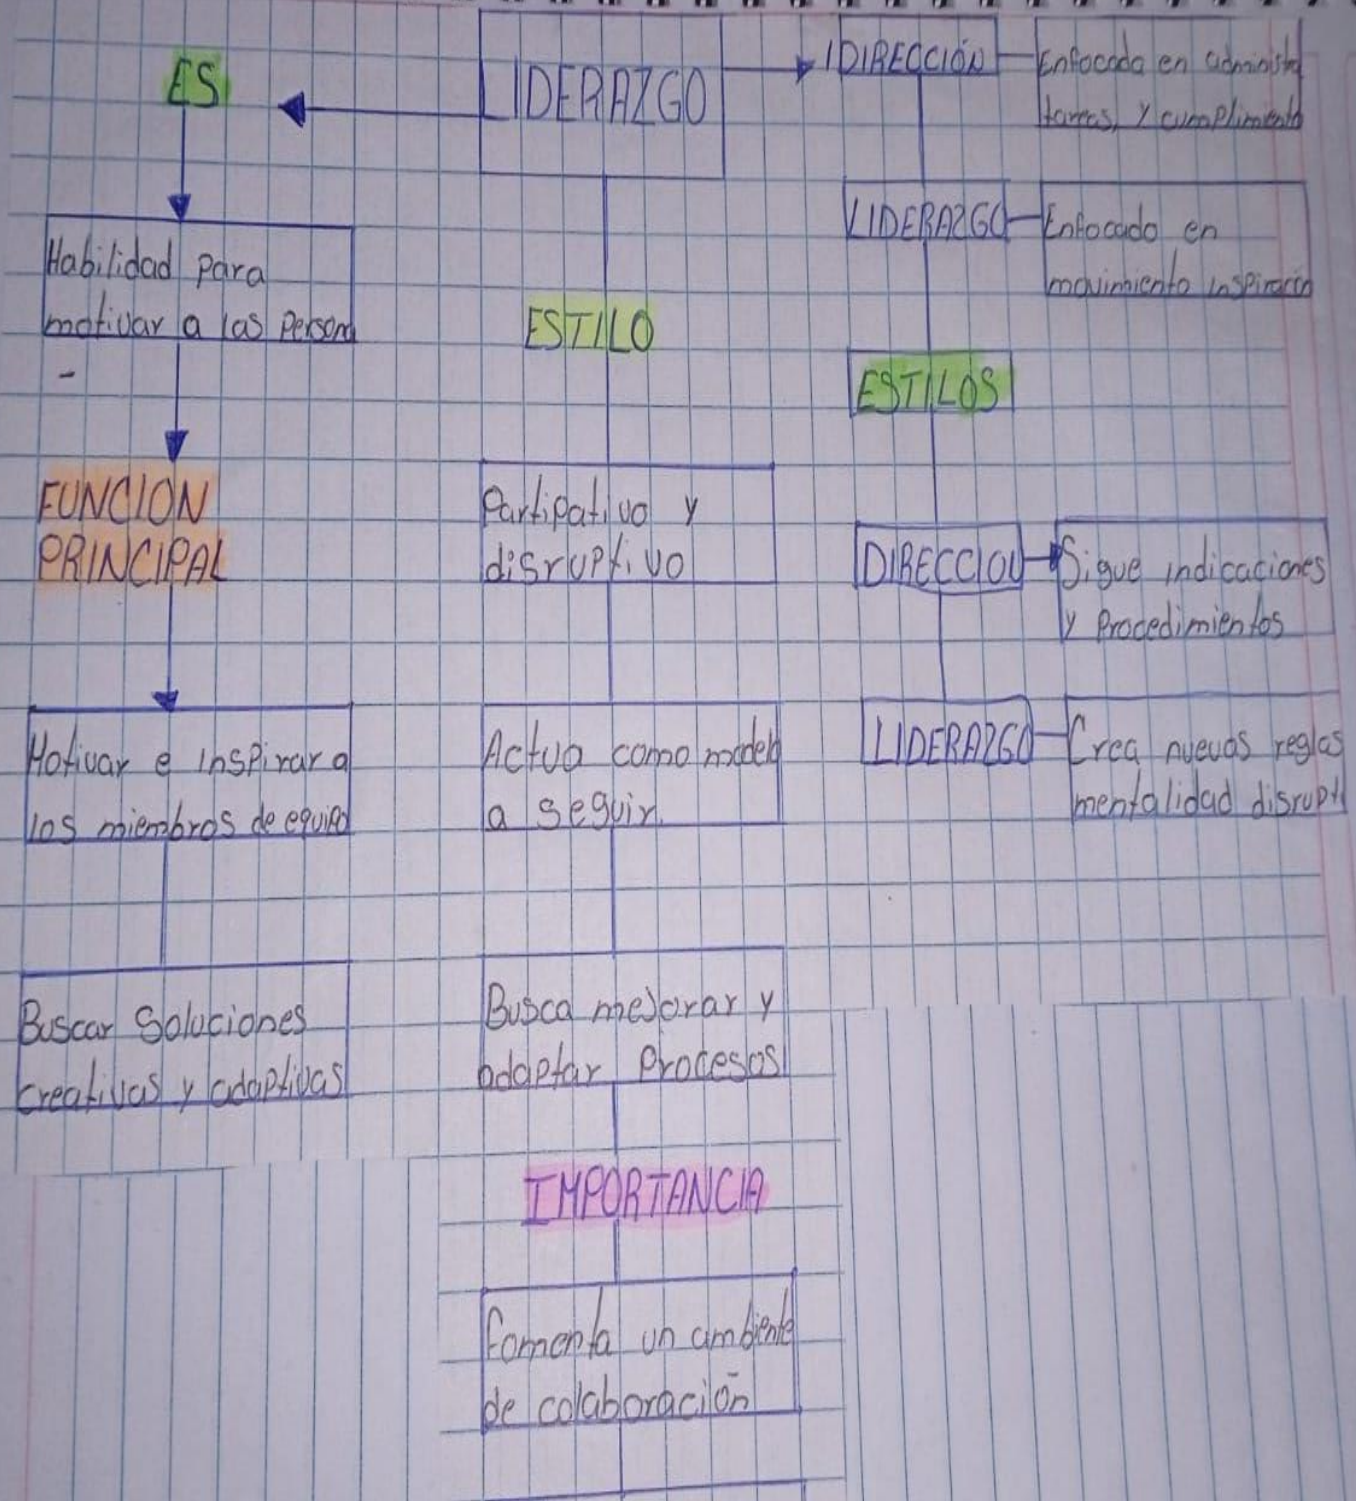 LIDERAZGO
ES
Habilidad para
motivar a las Person
-
FUNCION
PRINCIPAL
Motivar e inspirar a
los miembros de equipo
Buscar Soluciones
creativas y adaptivas
ESTILO
Partipativo y
disruptivo
Actua como model
a seguir.
Busca mejorar y
adaptar Procesos
IMPORTANCIA
Fomenta un ambiente
de colaboración
DIRECCIÓN
Enfocada en administ
tareas, y cumplimiento
LIDERAZGO
Enfocado en
movimiento inspiración
ESTILOS
DIRECCION
Sigue indicaciones
y Procedimientos
LIDERAZGO
Crea nuevas reglas
mentalidad disrupti